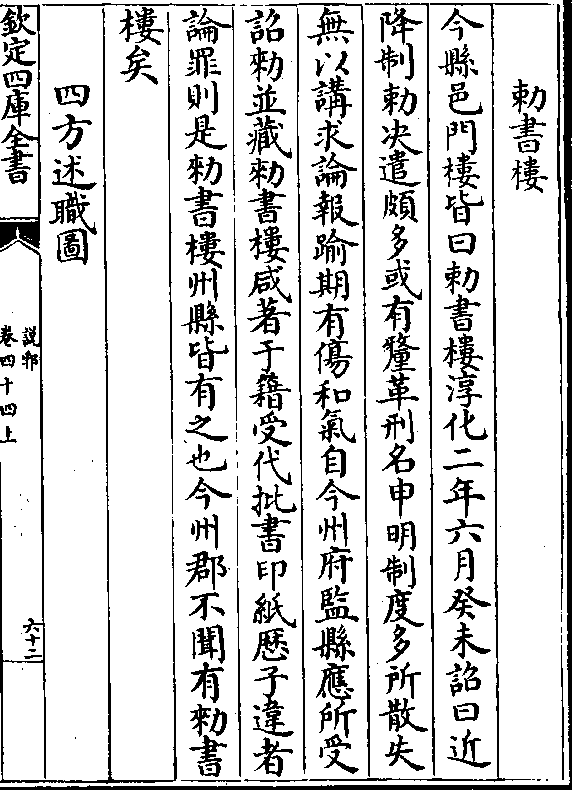 勅書樓
今縣邑門樓皆曰勅書樓淳化二年六月癸未詔曰近
降制勅决遣頗多或有釐革刑名申明制度多所散失
無以講求論報踰期有傷和氣自今州府監縣應所受
詔勅並藏勅書樓咸著于籍受代批書印紙厯子違者
論罪則是勅書樓州縣皆有之也今州郡不聞有勅書
樓矣
四方述職圖
欽定四庫全書
說郛
卷四十四上
六十二